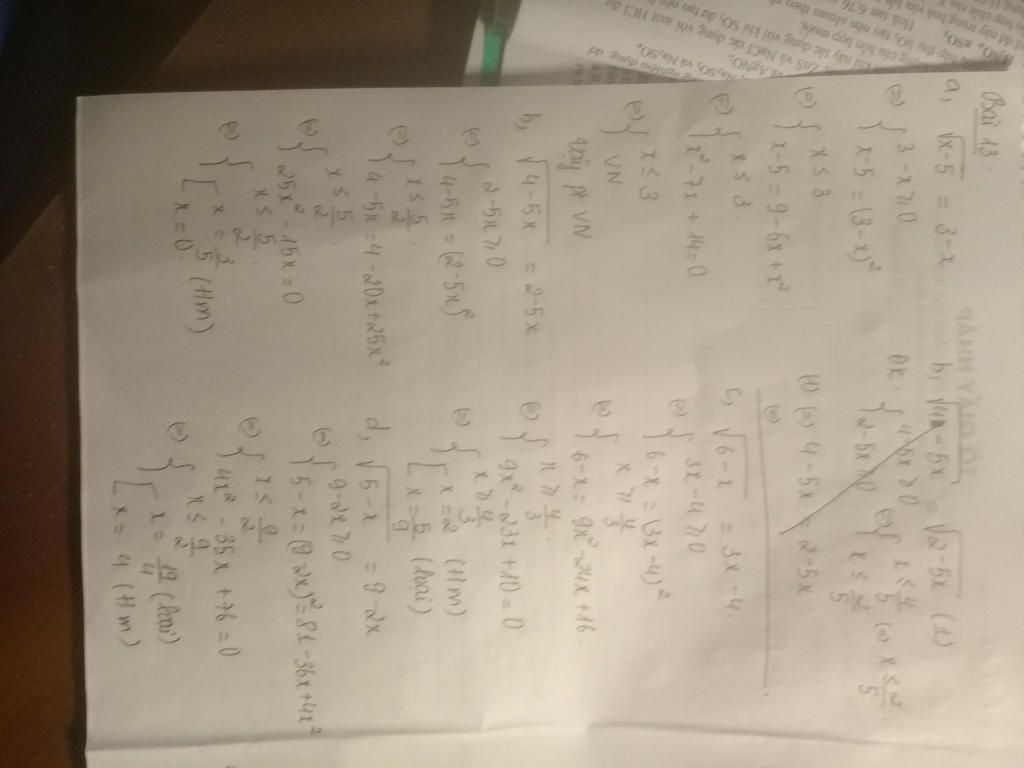 Bài 13.
a, √x-5 = 3-x
(=) { 3-x ≥ 0
x-5 = (3-x)²
(=) { x ≤ 3
x-5 = 9-6x+x²
(=) { x ≤ 3
x² - 7x + 14 = 0
(=) { x ≤ 3
VN
Vậy pt VN
b, √4-5x = 2-5x
(=) { 2-5x ≥ 0
4-5x = (2-5x)²
(=) { x ≤ 5/2
4-5x = 4-20x+25x²
(=) { x ≤ 5/2
25x² - 15x = 0
(=) { x ≤ 5/2
[ x = 3/5 (Hm)
x = 0
b, √4-5x = √2-5x (1)
ĐK: { 4-5x ≥ 0
2-5x ≥ 0 (=) { x ≤ 4/5
x ≤ 2/5 (=) x ≤ 2/5
(1) (=) 4-5x = 2-5x
(=)
c, √6-x = 3x-4.
(=) { 3x-4 ≥ 0
6-x = (3x-4)²
(=) { x ≥ 4/3
6-x = 9x²-24x+16.
(=) { x ≥ 4/3
9x² - 23x + 10 = 0
(=) { x ≥ 4/3
[ x = 2 (Hm)
x = 5/9 (loại)
d, √5-x = 9-2x
(=) { 9-2x ≥ 0
5-x = (9-2x)² = 81-36x+4x²
(=) { x ≤ 9/2
4x² - 35x + 76 = 0
(=) { x ≤ 9/2
[ x = 19/4 (loại)
x = 4 (Hm)